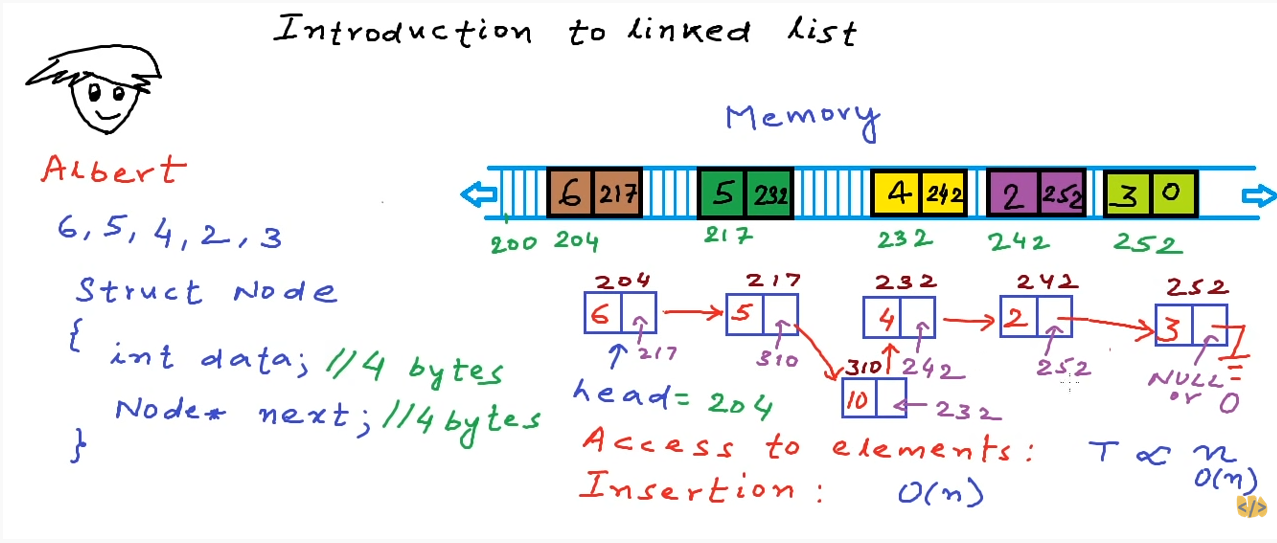 Introduction to linked list
Albert
6, 5, 4, 2, 3
Struct Node
{
int data; //4 bytes
Node* next; //4 bytes
}
Memory
6 217 5 232 4 242 2 252 3 0
200 204 217 232 242 252
204 217 232 242 252
6 5 4 2 3
217 310 242 252 NULL or 0
310
10 232
head = 204
Access to elements: T ∝ n
O(n)
Insertion: O(n)
</>